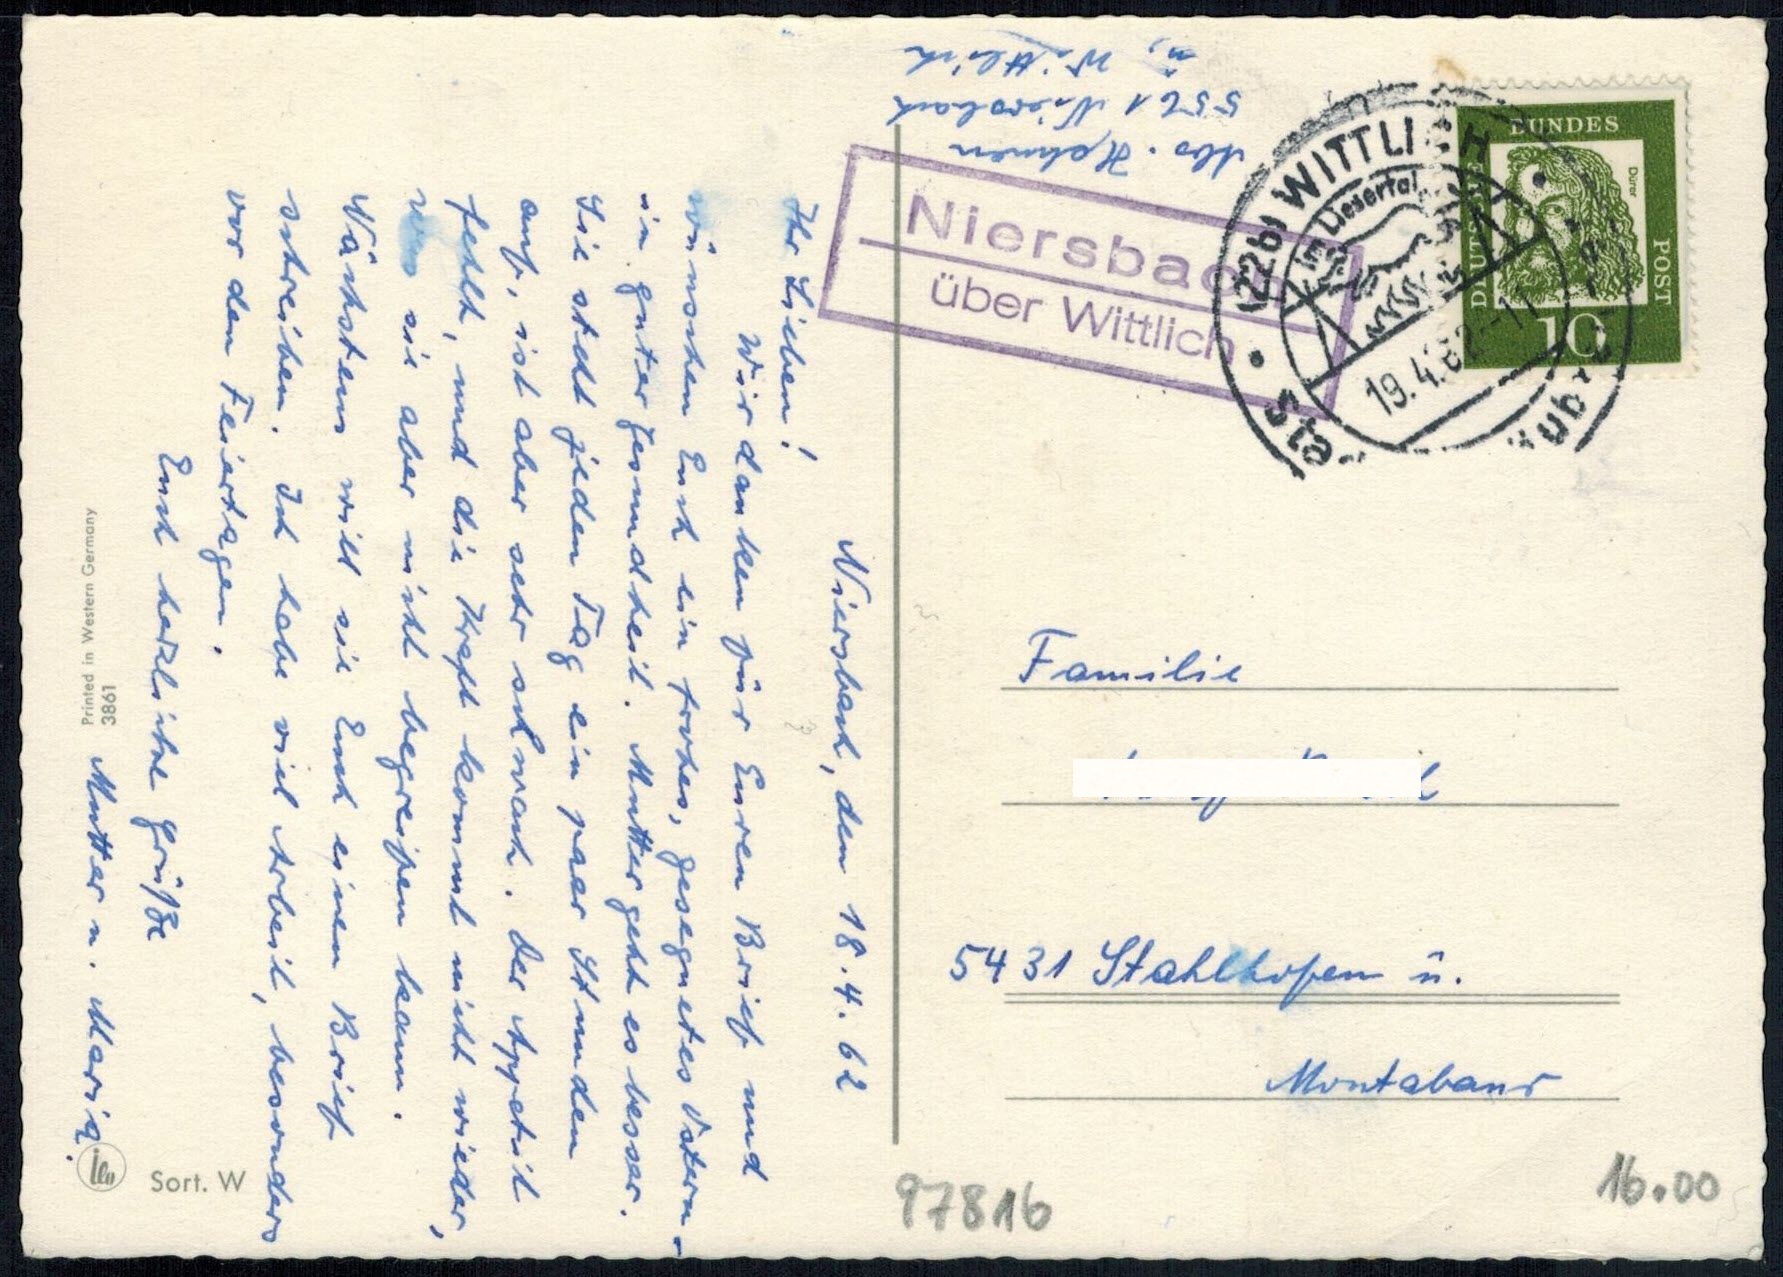 Abs. Hehnen
5561 Niersbach
ü, Wittlich
Niersbach
über Wittlich
(22b) WITTLICH
im Liesertal
19.4.62.-11
DEUTSCHE
BUNDES
POST
Dürer
10
Niersbach, den 18.4.62
Ihr Lieben!
Wir danken für Euren Brief und
wünschen Euch ein frohes, gesegnetes Ostern
in guter Gesundheit. Mutter geht es besser.
Sie steht jeden Tag ein paar Stunden
auf, ist aber sehr schwach. Der Appetit
fehlt, und die Kraft kommt nicht wieder,
was sie aber nicht begreifen kann.
Nächstens will sie Euch einen Brief
schreiben. Ich habe viel Arbeit, besonders
vor den Feiertagen.
Euch herzliche Grüße
Mutter u. Maria.
Familie
5431 Stahlhofen ü.
Montabaur
Printed in Western Germany
3861
Sort. W
97816
16.00